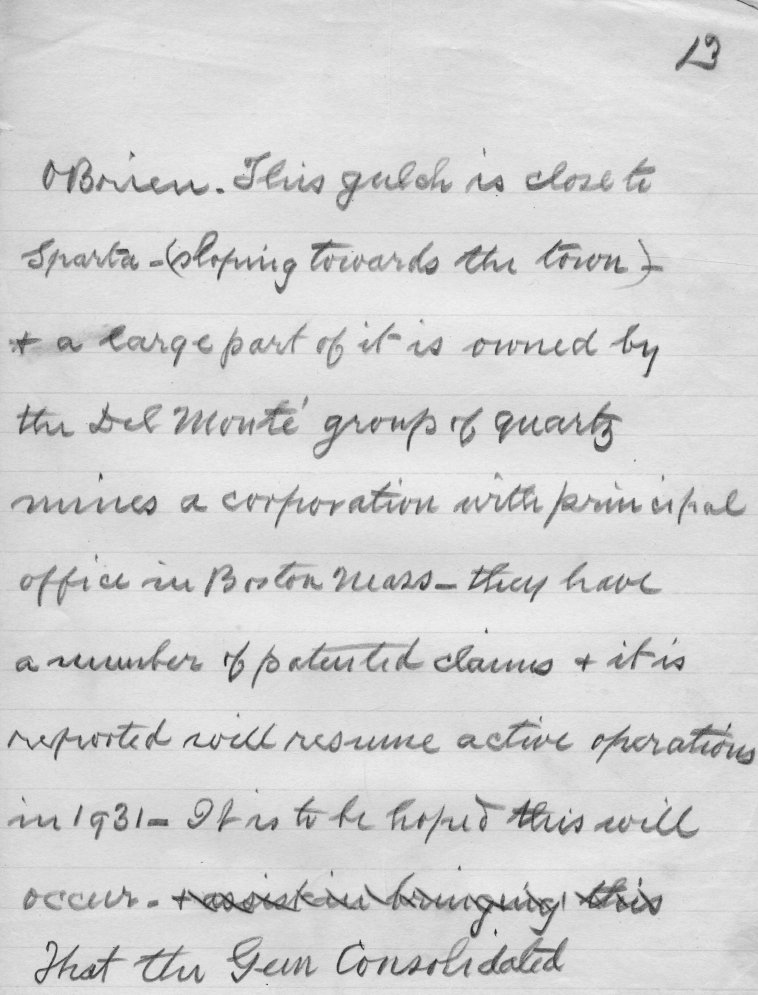 13
OBrien. This gulch is close to
Sparta - (sloping towards the town) -
+ a large part of it is owned by
the Del Monté group of quartz
mines a corporation with principal
office in Boston Mass - they have
a number of patented claims + it is
reported will resume active operations
in 1931 - It is to be hoped this will
occur. - + assist in bringing this
That the Gem Consolidated